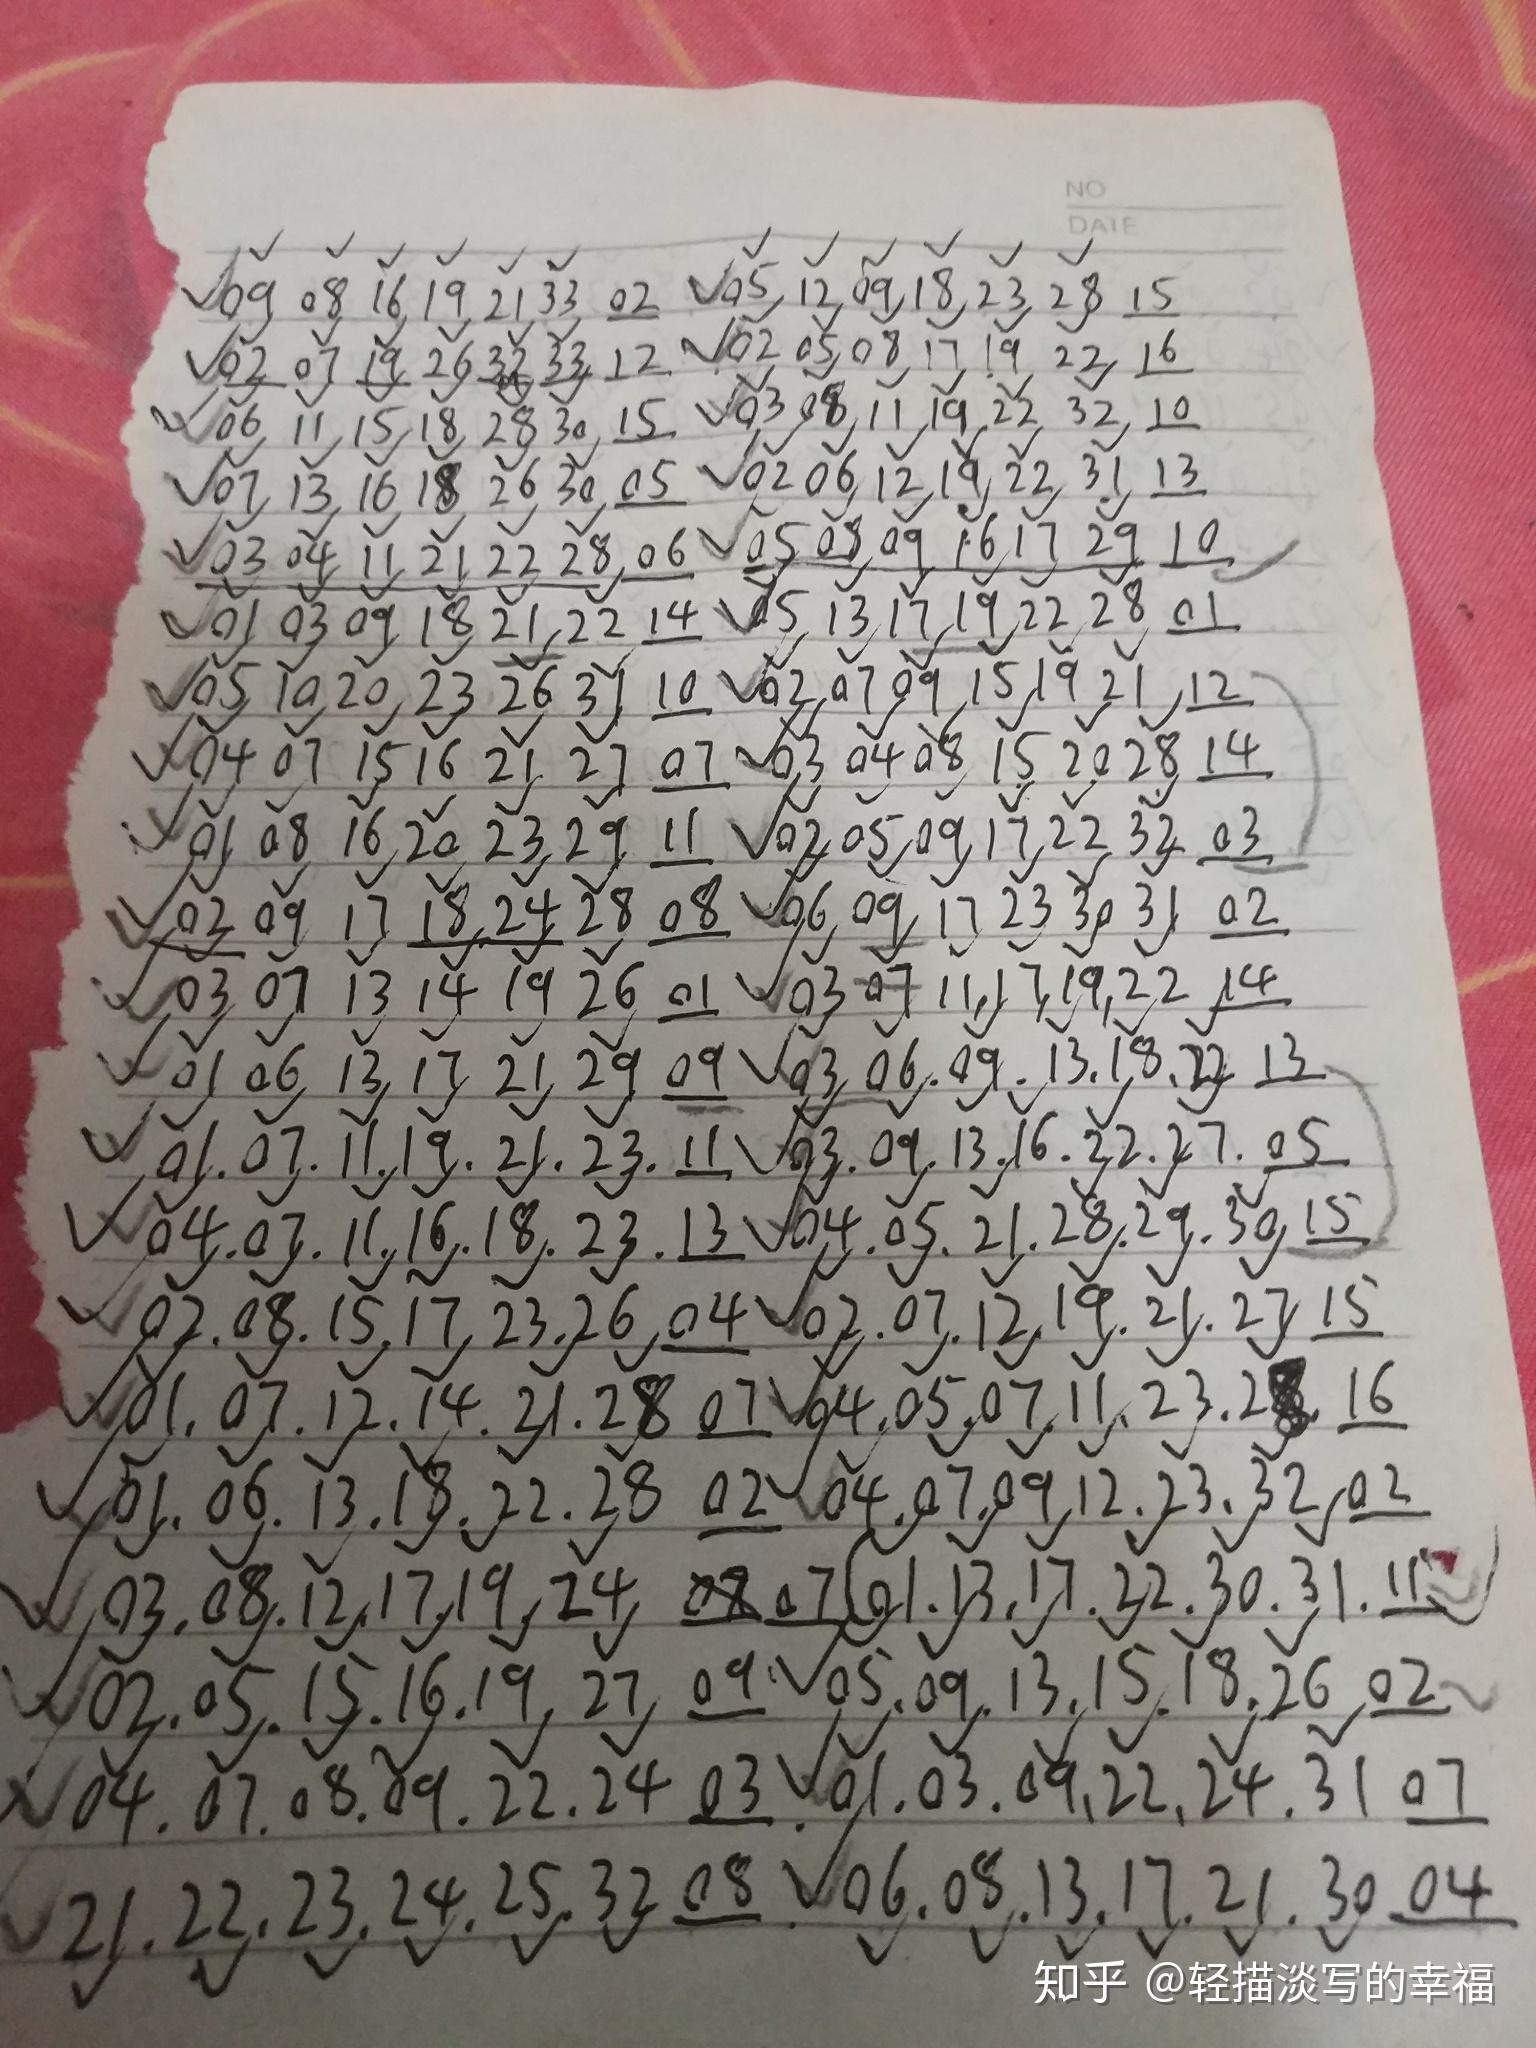 NO
DATE
09 08 16 19 21 33 02 05 12 09 18 23 28 15
02 07 19 26 32 33 12 02 05 08 17 19 22 16
06 11 15 18 28 30 15 03 08 11 19 22 32 10
07 13 16 18 26 30 05 02 06 12 19 22 31 13
03 04 11 21 22 28 06 05 08 09 16 17 29 10
01 03 09 18 21 22 14 05 13 17 19 22 28 01
05 10 20 23 26 31 10 02 07 09 15 19 21 12
04 07 15 16 21 27 07 03 04 08 15 20 28 14
01 08 16 20 23 29 11 02 05 09 17 22 32 03
02 09 17 18 24 28 08 06 09 17 23 30 31 02
03 07 13 14 19 26 01 03 07 11 17 19 22 14
01 06 13 17 21 29 09 03 06. 09. 13. 18. 22 13
01. 07. 11. 19. 21. 23. 11 03. 09. 13. 16. 22. 27. 05
04. 07. 11. 16. 18. 23. 13 04. 05. 21. 28. 29. 30 15
02. 08. 15. 17. 23. 26 04 02. 07. 12. 19. 21. 27 15
01. 07. 12. 14. 21. 28 07 04. 05. 07. 11. 23. 28. 16
01. 06. 13. 18. 22. 28 02 04. 07. 09 12. 23. 32 02
03. 08. 12. 17. 19. 24 08 07 01. 13. 17. 22. 30. 31. 11
02. 05. 15. 16. 19. 27 09 05. 09. 13. 15. 18. 26 02
04. 07. 08. 09. 22. 24 03. 01. 03. 09. 22. 24. 31 07
21. 22. 23. 24. 25. 32 08. 06. 08. 13. 17. 21. 30 04
知乎 @轻描淡写的幸福